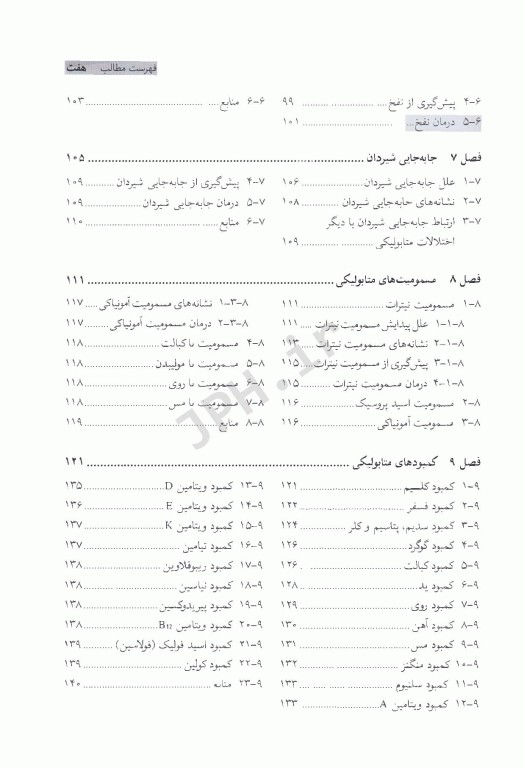 فهرست مطالب هفت
۶-۴ پیش‌گیری از نفخ ۹۹
۶-۵ درمان نفخ ۱۰۱
۶-۶ منابع ۱۰۳
فصل ۷ جابه‌جایی شیردان ۱۰۵
۷-۱ علل جابه‌جایی شیردان ۱۰۶
۷-۲ نشانه‌های جابه‌جایی شیردان ۱۰۸
۷-۳ ارتباط جابه‌جایی شیردان با دیگر
اختلالات متابولیکی ۱۰۹
۷-۴ پیش‌گیری از جابه‌جایی شیردان ۱۰۹
۷-۵ درمان جابه‌جایی شیردان ۱۰۹
۷-۶ منابع ۱۱۰
فصل ۸ مسمومیت‌های متابولیکی ۱۱۱
۸-۱ مسمومیت نیترات ۱۱۱
۸-۱-۱ علل پیدایش مسمومیت نیترات ۱۱۱
۸-۱-۲ نشانه‌های مسمومیت نیترات ۱۱۳
۸-۱-۳ پیش‌گیری از مسمومیت نیترات ۱۱۵
۸-۱-۴ درمان مسمومیت نیترات ۱۱۵
۸-۲ مسمومیت اسید پروسیک ۱۱۶
۸-۳ مسمومیت آمونیاکی ۱۱۶
۸-۳-۱ نشانه‌های مسمومیت آمونیاکی ۱۱۷
۸-۳-۲ درمان مسمومیت آمونیاکی ۱۱۷
۸-۴ مسمومیت با کبالت ۱۱۸
۸-۵ مسمومیت با مولیبدن ۱۱۸
۸-۶ مسمومیت با روی ۱۱۸
۸-۷ مسمومیت با مس ۱۱۸
۸-۸ منابع ۱۱۹
فصل ۹ کمبودهای متابولیکی ۱۲۱
۹-۱ کمبود کلسیم ۱۲۱
۹-۲ کمبود فسفر ۱۲۲
۹-۳ کمبود سدیم، پتاسیم و کلر ۱۲۴
۹-۴ کمبود گوگرد ۱۲۶
۹-۵ کمبود کبالت ۱۲۶
۹-۶ کمبود ید ۱۲۸
۹-۷ کمبود روی ۱۲۹
۹-۸ کمبود آهن ۱۳۰
۹-۹ کمبود مس ۱۳۱
۹-۱۰ کمبود منگنز ۱۳۲
۹-۱۱ کمبود سلنیوم ۱۳۳
۹-۱۲ کمبود ویتامین A ۱۳۳
۹-۱۳ کمبود ویتامین D ۱۳۵
۹-۱۴ کمبود ویتامین E ۱۳۶
۹-۱۵ کمبود ویتامین K ۱۳۷
۹-۱۶ کمبود تیامین ۱۳۷
۹-۱۷ کمبود ریبوفلاوین ۱۳۸
۹-۱۸ کمبود نیاسین ۱۳۸
۹-۱۹ کمبود پیریدوکسین ۱۳۸
۹-۲۰ کمبود ویتامین B₁₂ ۱۳۸
۹-۲۱ کمبود اسید فولیک (فولاسین) ۱۳۹
۹-۲۲ کمبود کولین ۱۳۹
۹-۲۳ منابع ۱۴۰
JPH.ir